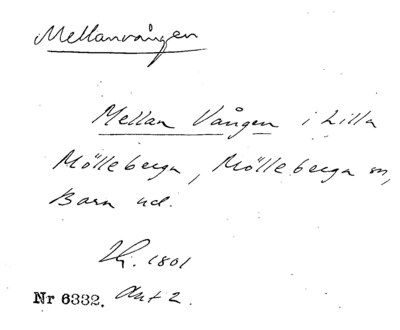 Mellanvången
Mellan Vången i Lilla
Mölleberga, Mölleberga sn,
Bara hd.
1801
Nr 6332. Akt 2.